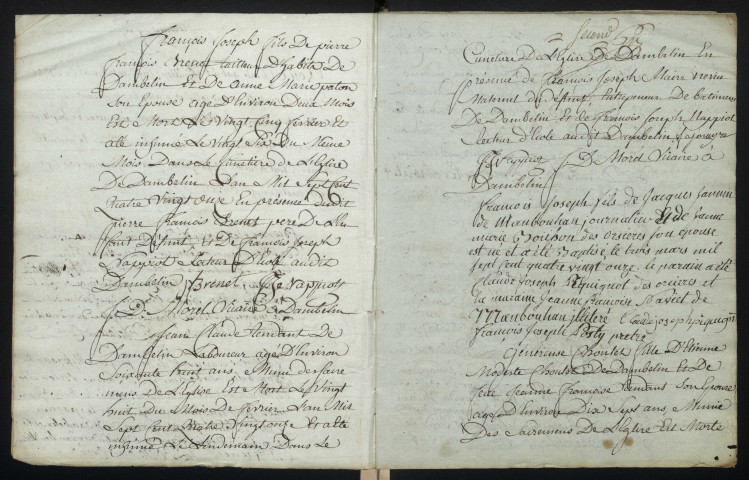 François Joseph fils De pierre
François Brenet tailleur D'habits De
Dambelin Et De anne Marie
Son Epouse agé D'Environ Deux Mois
Est Mort Le vingt cinq fevrier Et
ate inhumé Le vingt Six Du Meme
Mois Dans Le Cimetiere De L'Eglise
De Dambelin L'an Mil Sept Cent
quatre vingt onze En présence Dudit
pierre François Brenet pere De L'en
fant Défunt, Et De François Joseph
Vappiot Recteur D'Ecole audit
Dambelin Brenet Vappiott
Morel Vicaire à Dambelin
Jean Claude De
Dambelin Laboureur agé D'Environ
Soixante huit ans, Muni des Sacre
mens De L'Eglise Est Mort Le vingt
huit Du Mois De fevrier L'an Mil
Sept Cent quatre vingt onze Et a Eté
inhumé Le Lendemain Dans Le
Cimetiere De L'Eglise De Dambelin En
présence De François Joseph Maire
Maternel du deffunt, Entrepreneur De batimens
De Dambelin Et de François Joseph Vappiot
Recteur d'Ecole audit Dambelin
Vappiot Morel Vicaire à
Dambelin
François Joseph fils de Jacques
de Manbouhan journalier et de
marie des orcieres son épouse
est né et a été Baptisé le trois mars mil
sept cent quatre vingt onze. le parrain a été
Claude Joseph des orcieres et
la maraine Jeanne Françoise de
Manbouhan
François Joseph pretre
Généreuse fille D'Etienne
Modeste De Dambelin Et De
feue Jeanne Françoise Son Epouse
agée D'Environ Dix Sept ans, Munie
Des Sacremens De L'Eglise Est Morte